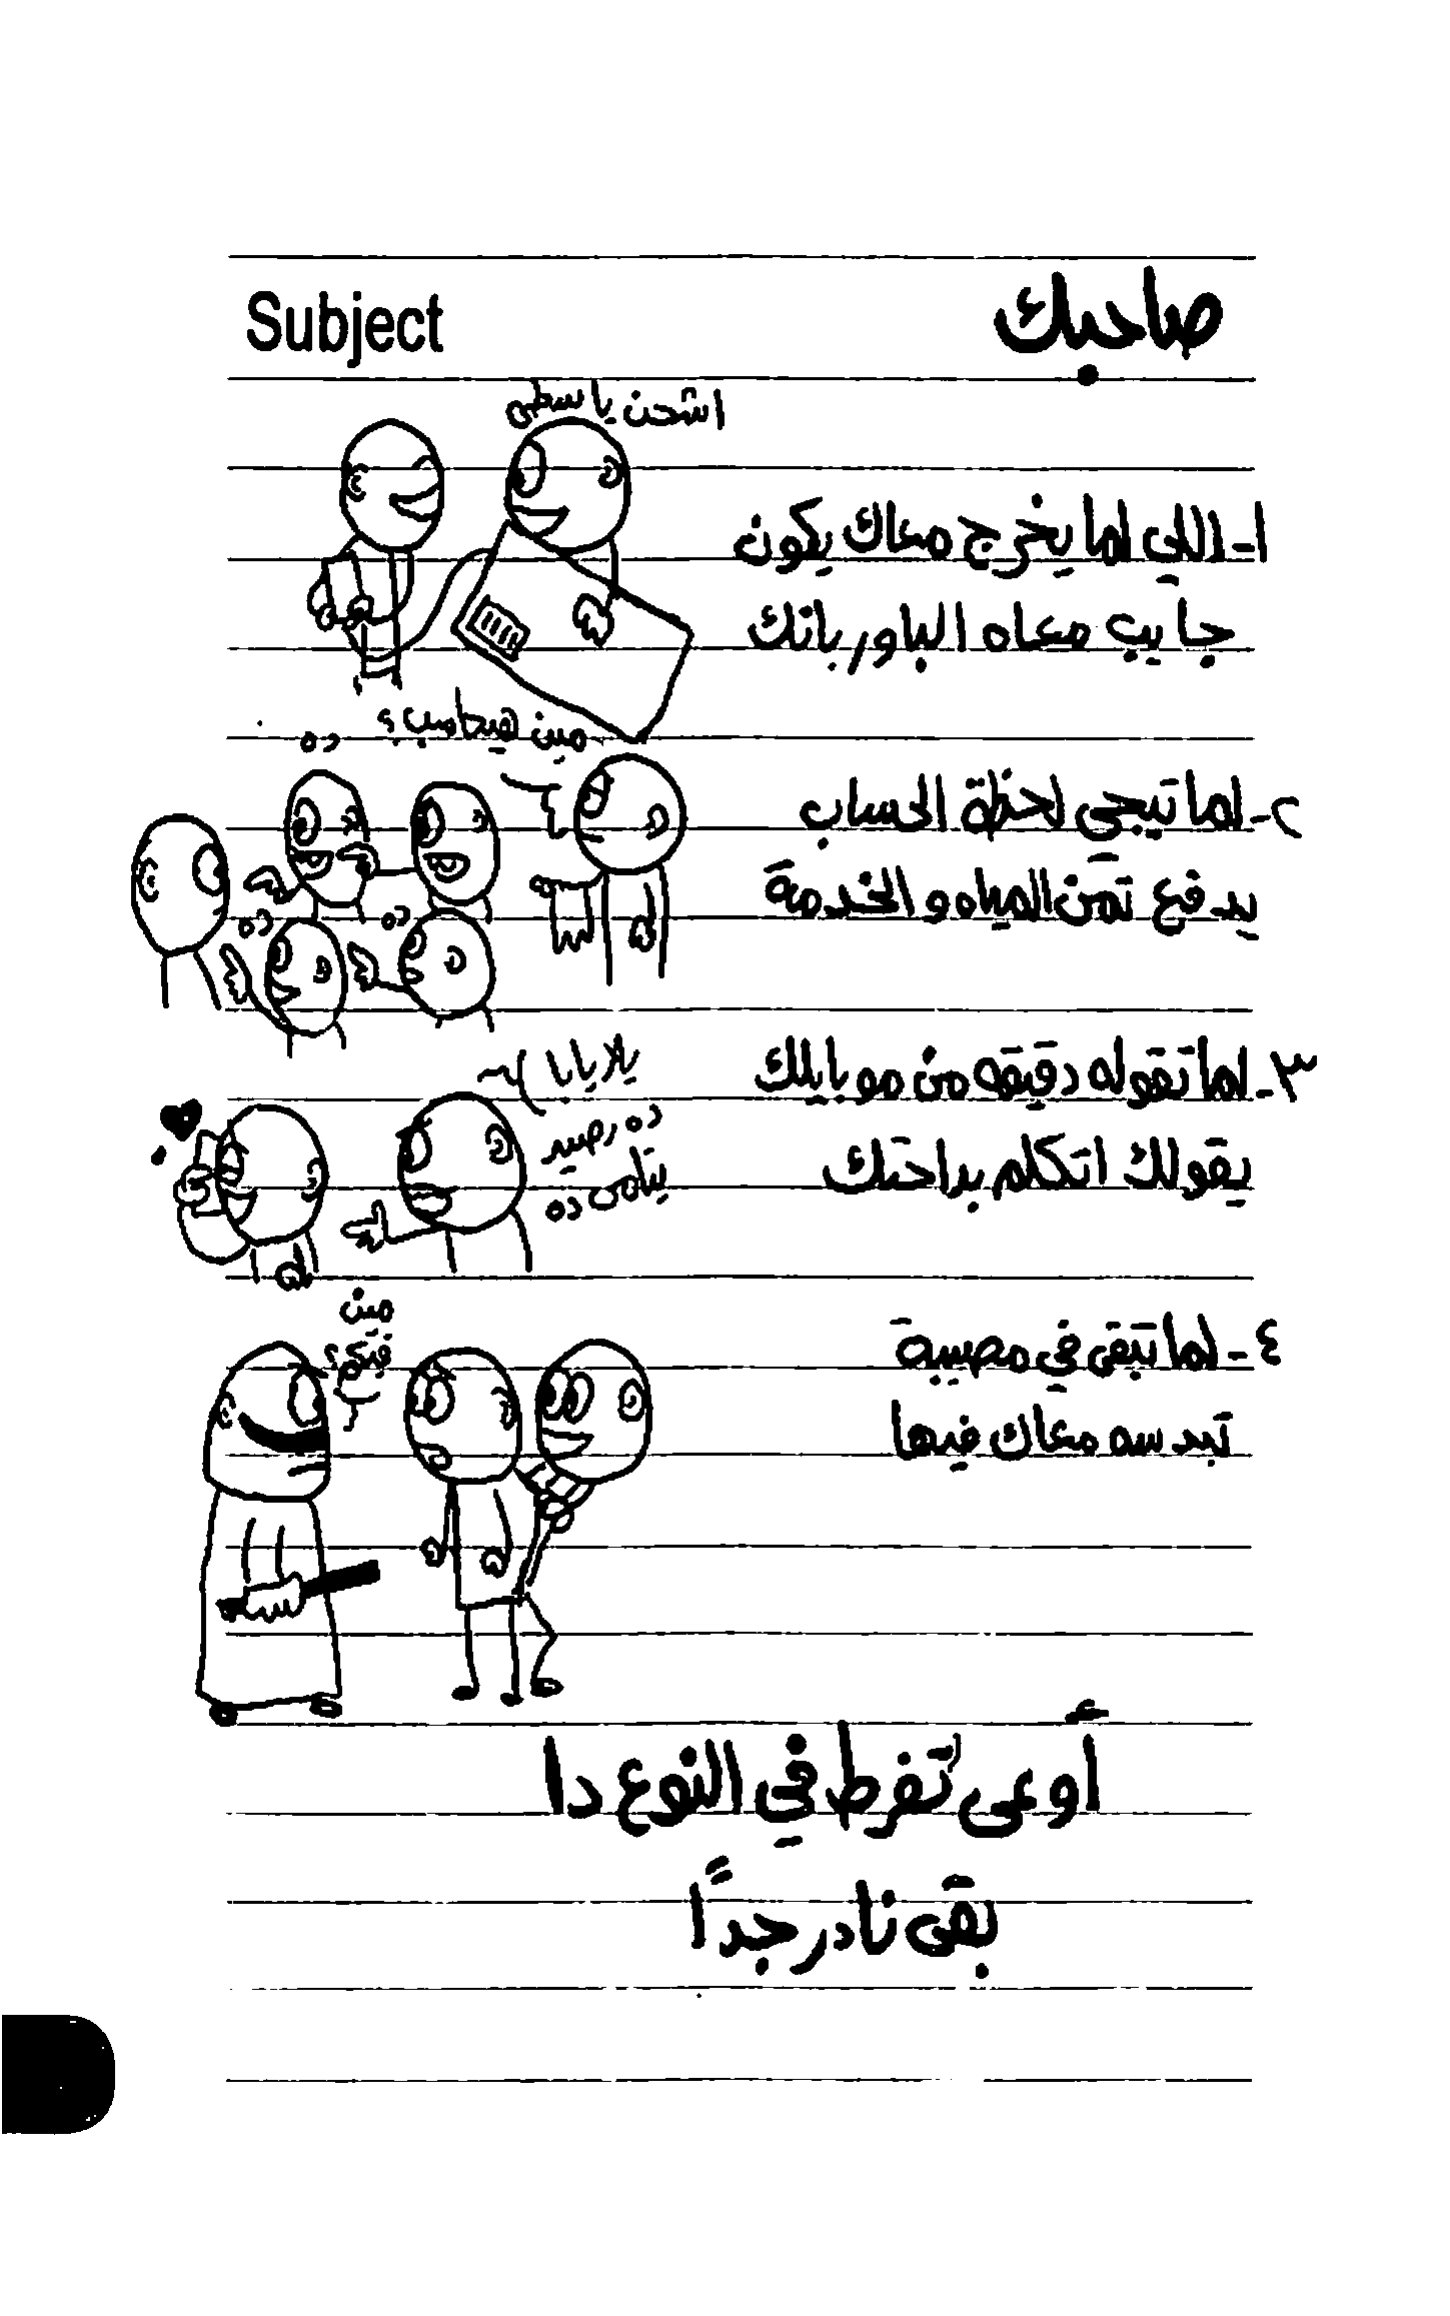 Subject
صاحبك
اشحن ياسطى
١- اللي لما يخرج معاك يكون
جايب معاه الباور بانك
مين هيحاسب؟
ده
٢- لما تيجي لحظة الحساب
يدفع تمن المياه و الخدمة
ده
ده
٣- لما تقوله دقيقه من موبايلك
يقولك اتكلم براحتك
يلا يابا
ده رصيد
ده
مين
فيكو؟
٤- لما تبقى في مصيبة
تبد سه معاك فيها
أوعى تُفرط في النوع دا
بقى نادر جداً